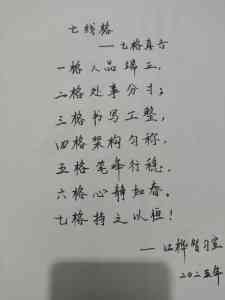 七线格
——七格真言
一格人品端正，
二格处事分寸；
三格书写工整，
四格架构匀称，
五格笔峰行稳，
六格心静如春，
七格持之以恒！
——
二〇二五年